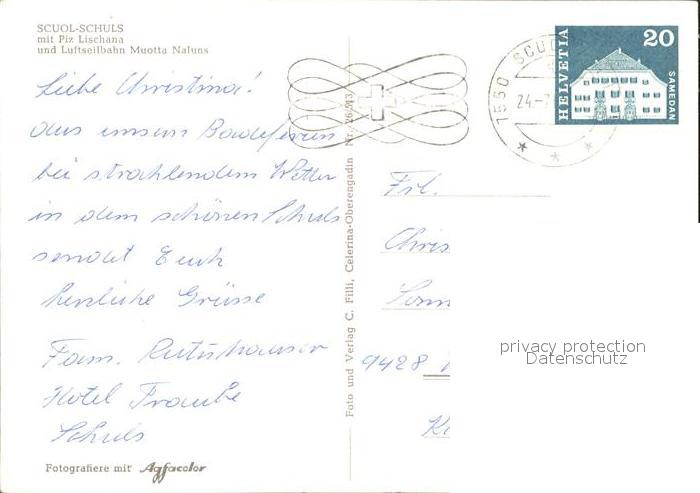 SCUOL-SCHULS
mit Piz Lischana
und Luftseilbahn Muotta Naluns
Liebe Christina!
Aus unsern Badeferien
bei strahlendem Wetter
in dem schönen Schuls
sendet Euch
herzliche Grüsse
Fam. Rutishauser
Hotel Traube
Schuls
Fotografiere mit Agfacolor
Foto und Verlag C. Filli, Celerina-Oberengadin Nr.
1550 SCUO
24.-
HELVETIA
20
SAMEDAN
Frl.
Chris
Sonn
9428
privacy protection
Datenschutz